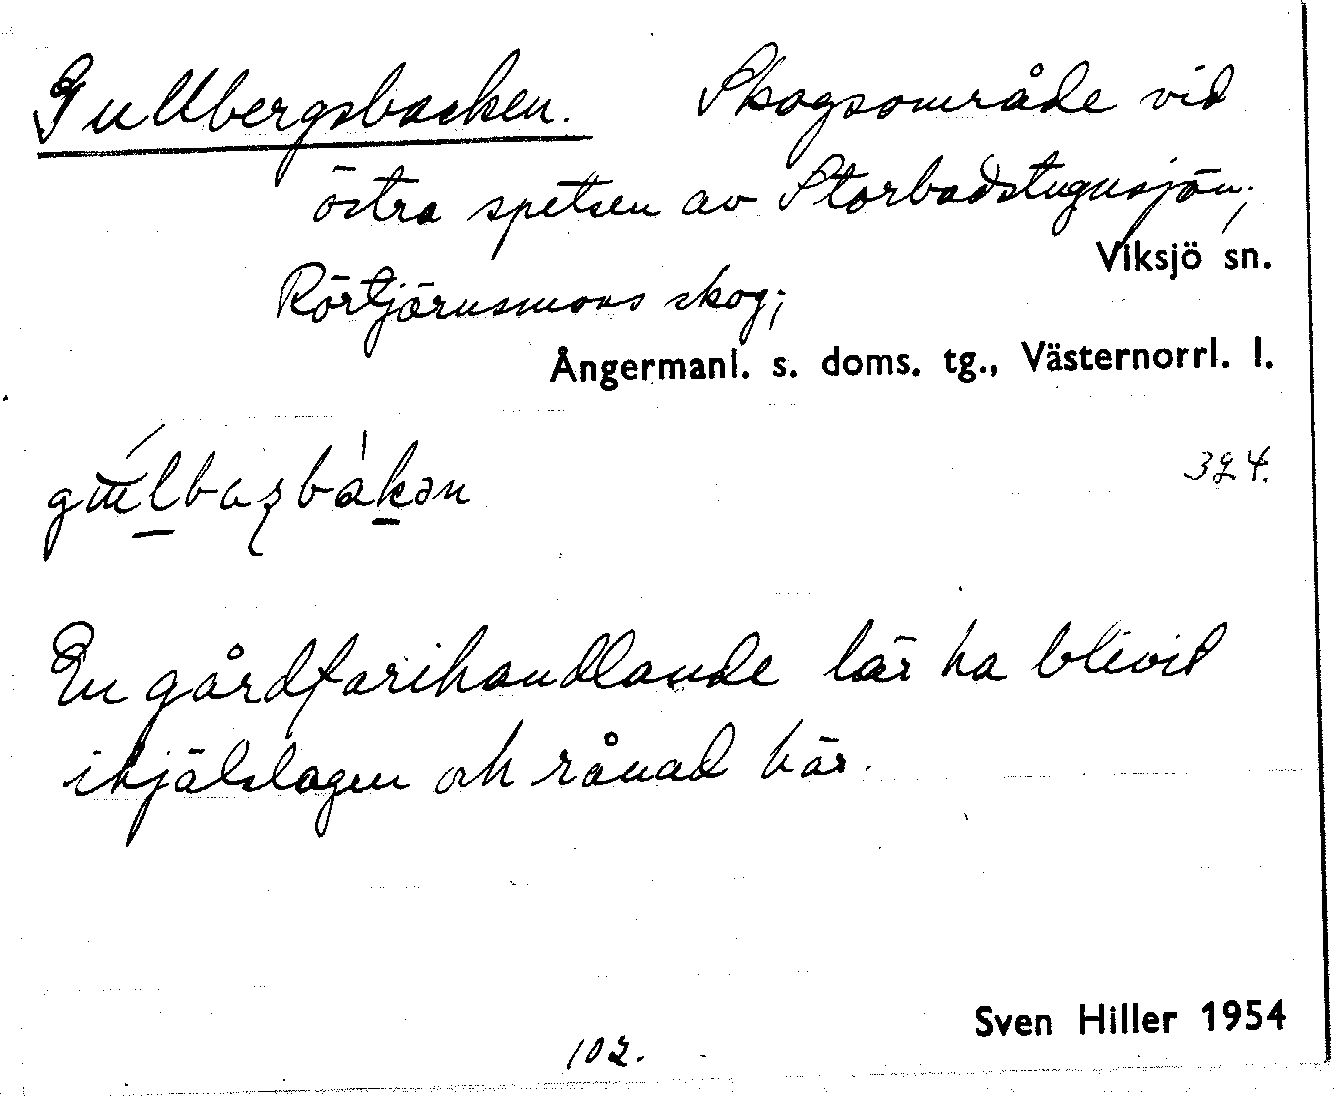 Gullbergsbacken. Skogsområde vid
östra spetsen av Storbadstugusjön;
Viksjö sn.
Rörtjärnsmons skog;
Ångermanl. s. doms. tg., Västernorrl. l.
324.
En gårdfarihandlande lär ha blivit
ihjälslagen och rånad här.
Sven Hiller 1954
102.